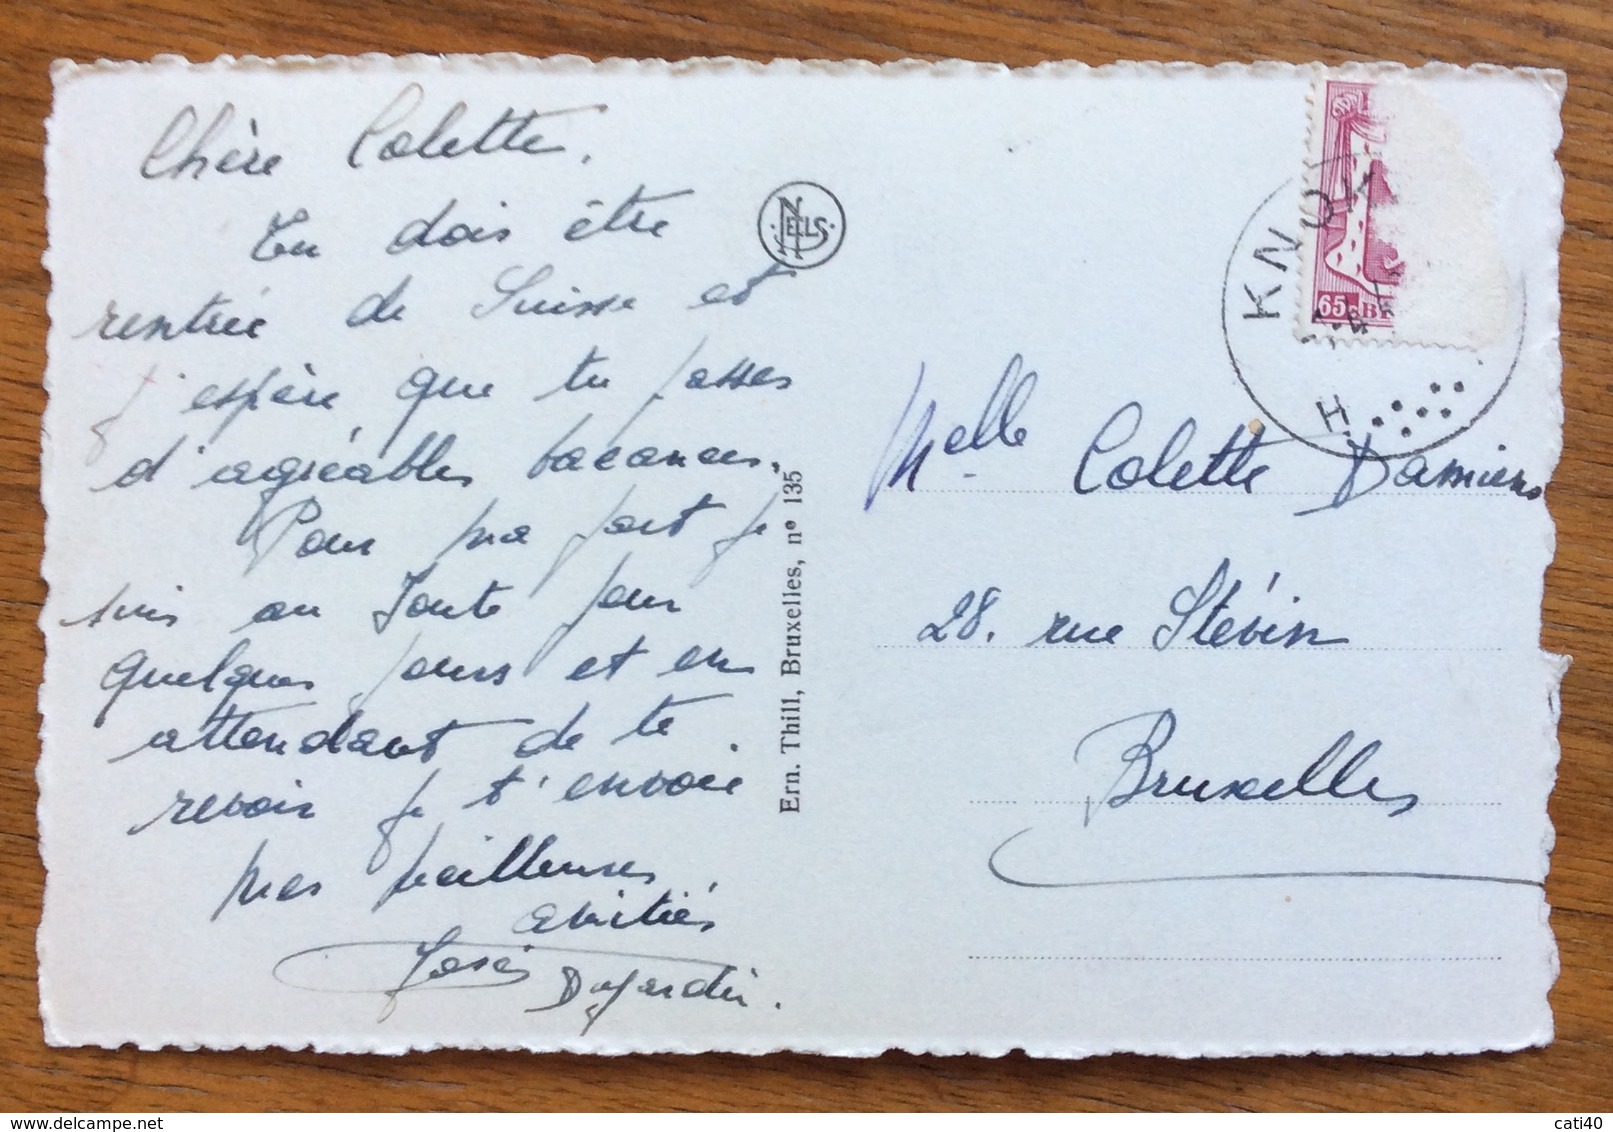 Chère Colette,
Tu dois être
rentrée de Suisse et
j'espère que tu passes
d'agréables vacances.
Pour ma part je
suis au Zoute pour
quelques jours et en
attendant de te
revoir je t'envoie
mes meilleures
amitiés
José
Dujardin.
NELS
Ern. Thill, Bruxelles, n° 135
KNOK
65c
H
Melle Colette Damiens
28. rue Stévin
Bruxelles
cati40